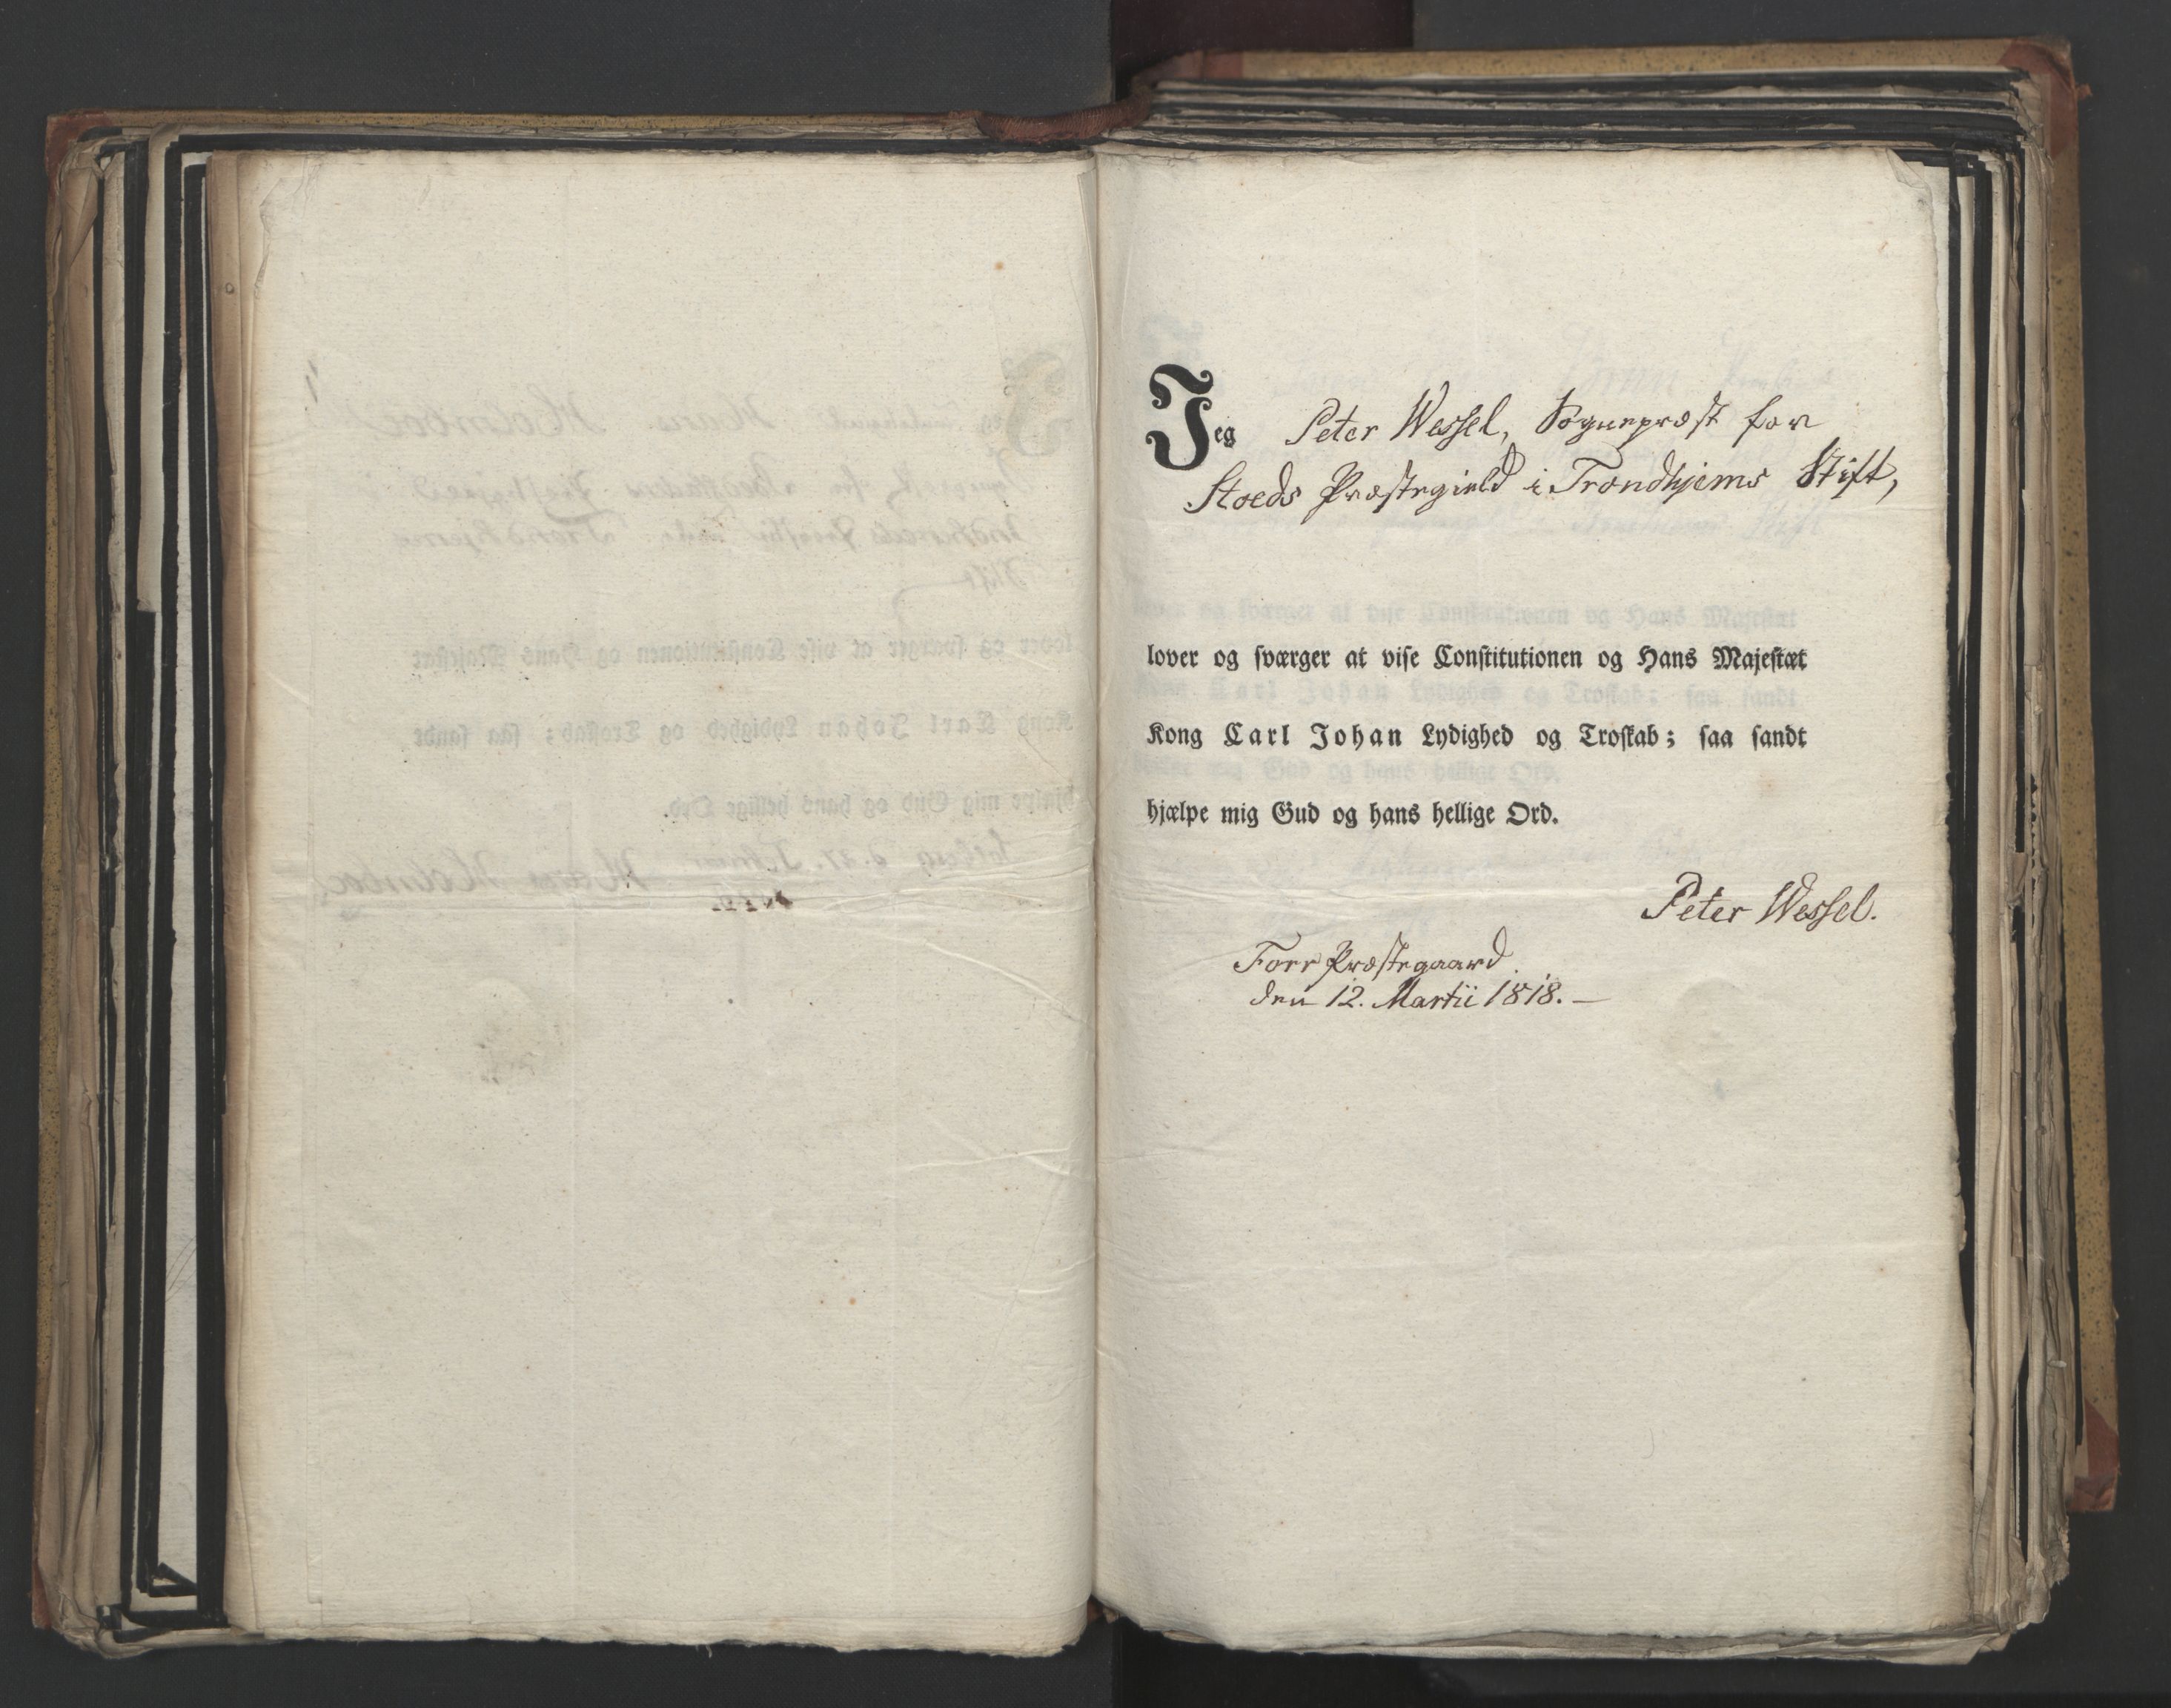 Jeg Peter Wessel, Sognepræst for
Stoeds Præstegield i Trondhjems Stift,
lover og sværger at vise Constitutionen og Hans Majestæt
Kong Carl Johan Lydighed og Troskab; saa sandt
hjælpe mig Gud og hans hellige Ord.
Peter Wessel.
Forr Præstegaard
den 12. Martii 1818. —